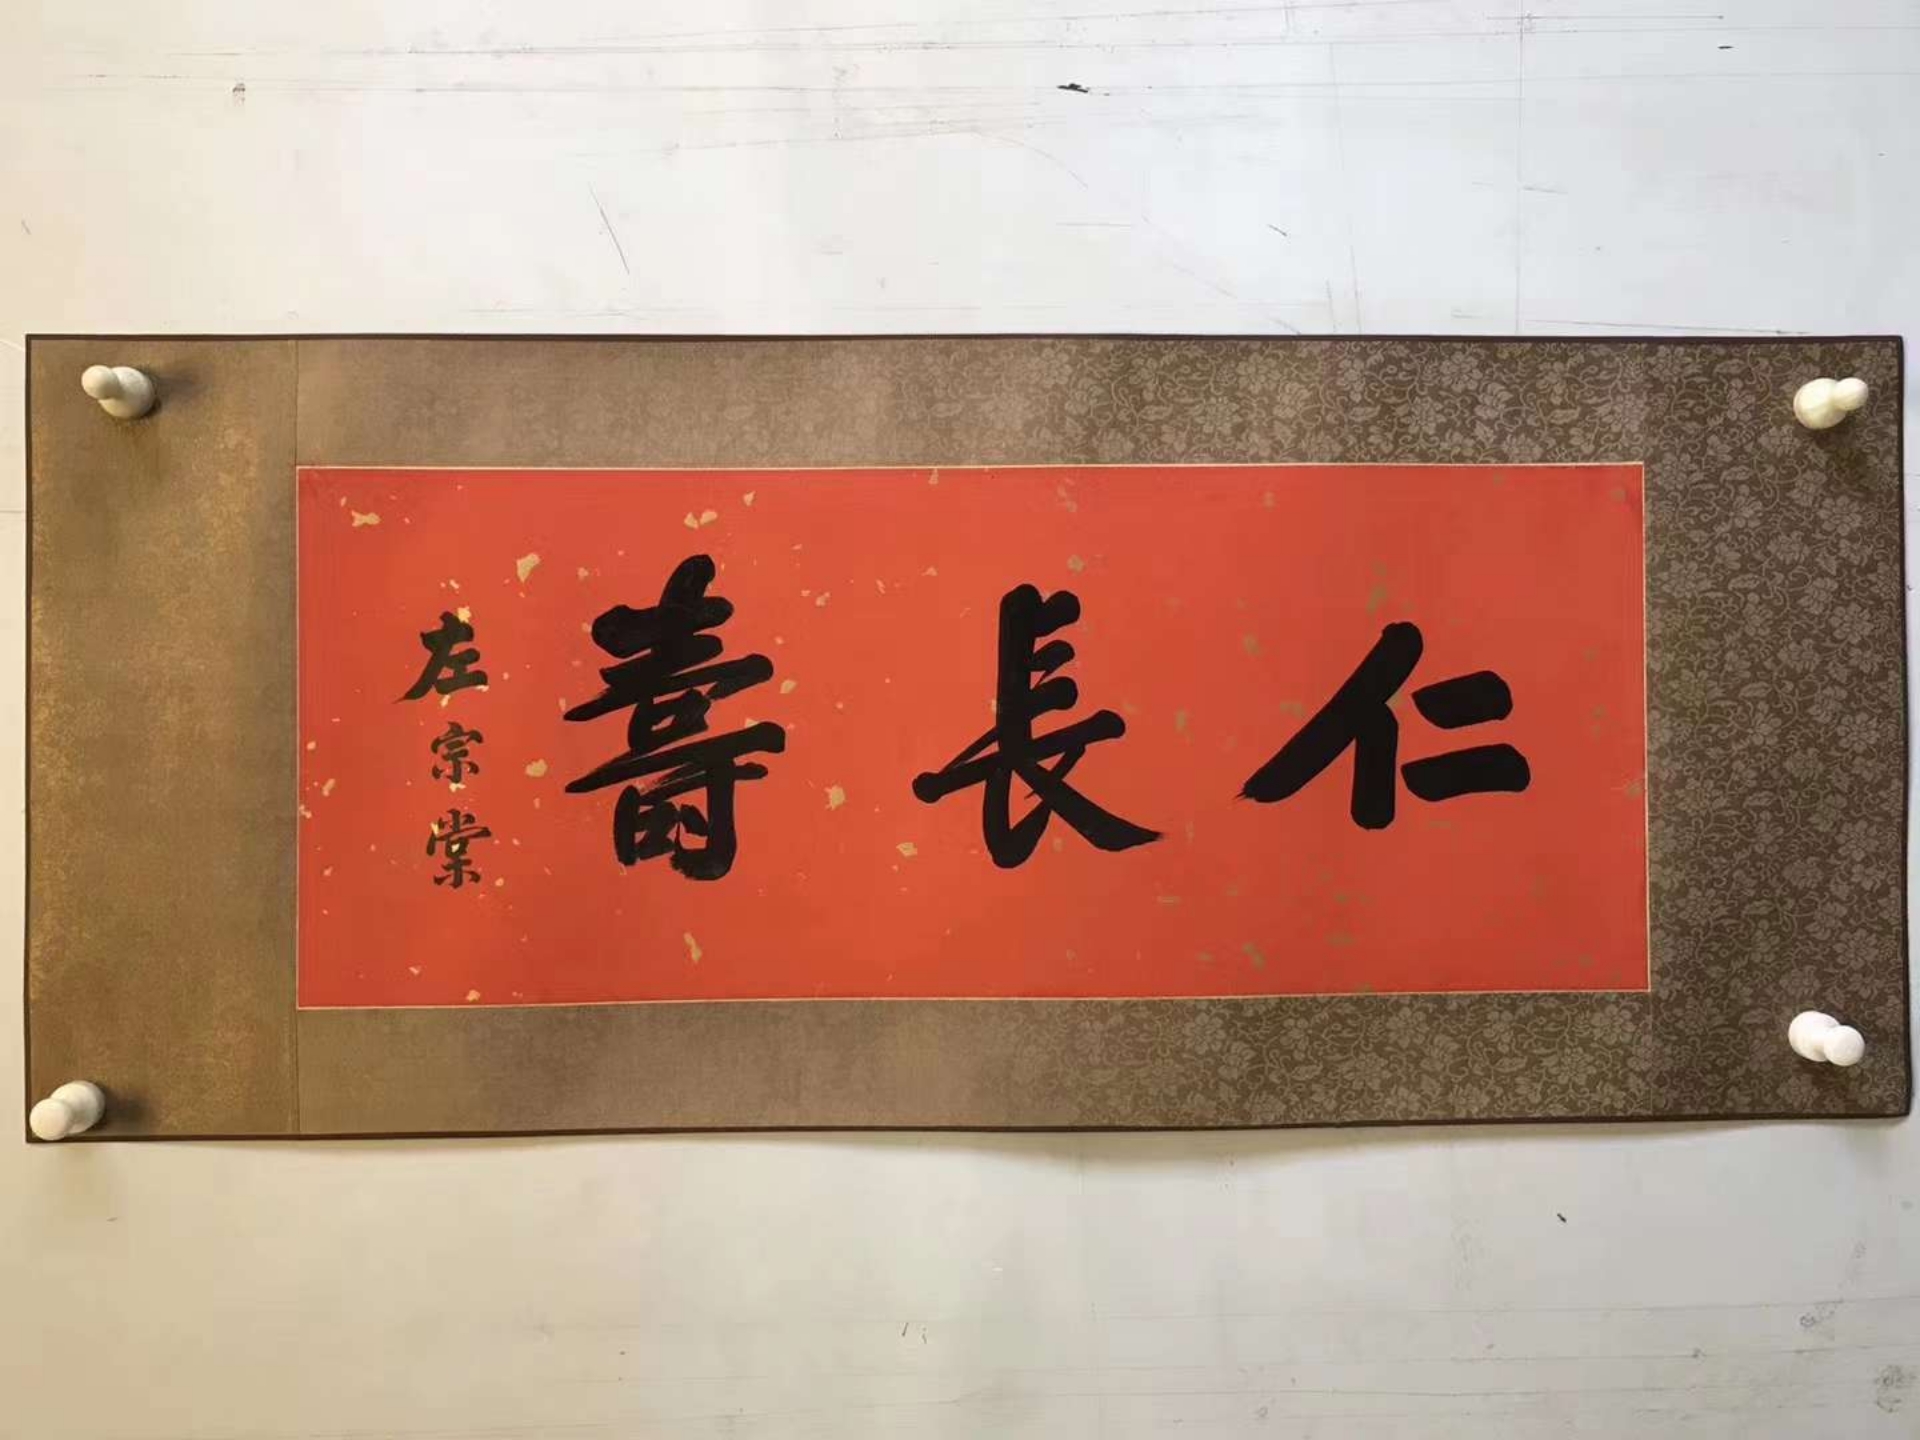 仁長壽
左宗棠